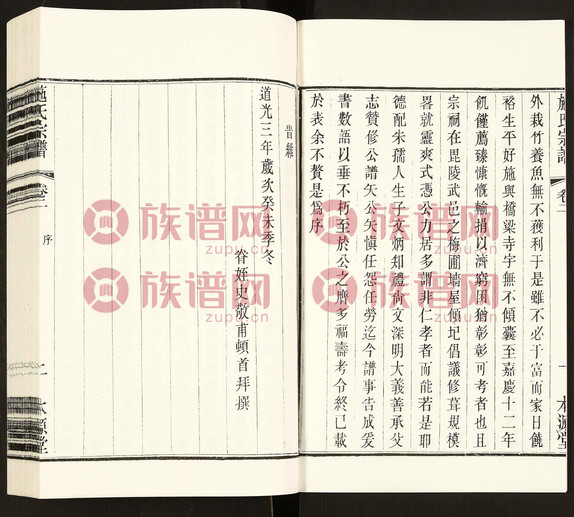 施氏宗譜
卷二
一
本源堂
外栽竹養魚無不獲利于是雖不必于富而家日饒
裕生平好施與橋梁寺宇無不傾囊至嘉慶十二年
飢饉薦臻慷慨輸捐以濟窮困猶彰彰可考者也且
宗祠在毘陵武邑之梅圃墻屋傾圮倡議修葺規模
畧就靈爽式憑公力居多謂非仁孝者而能若是耶
德配朱孺人生子文炳知禮尚文深明大義善承父
志贊修公譜矢公矢慎任怨任勞迄今譜事告成爰
書數語以垂不朽至於公之躋多福壽考令終已載
於表余不贅是為序
旹
道光三年歲次癸未季冬
眷姪史敬甫頓首拜撰
施氏宗譜
卷二
序
二
本源堂
族谱网
zupu.cn
族谱网
zupu.cn
族谱网
zupu.cn
族谱网
zupu.cn